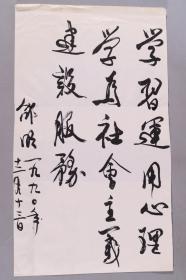 学習運用心理
学为社會主義
建設服務
一九九〇年
十二月十三日